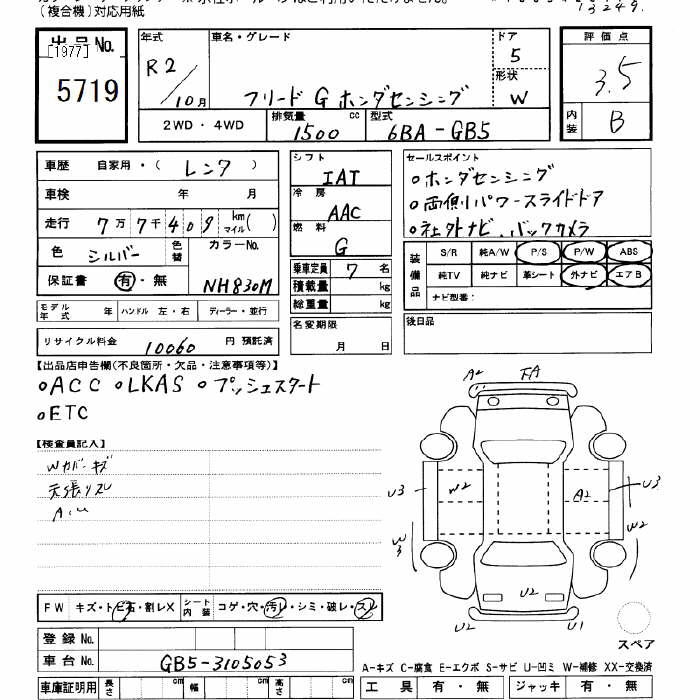 (複合機)対応用紙
13249.
出品No.
[1977]
5719
年式
R2/10月
車名・グレード
フリード G ホンダセンシング
ドア
5
形状
W
評価点
3.5
内装
B
2WD・4WD
排気量 1500 cc
型式 6BA-GB5
車歴 自家用・(レンタ)
車検 年 月
走行 7万7千409 km マイル( )
色 シルバー 色替 カラーNo. NH830M
保証書 有・無
モデル年式 年 ハンドル 左・右 ディーラー・並行
リサイクル料金 10060 円 預託済
シフト
IAT
冷房
AAC
燃料
G
乗車定員 7 名
積載量 kg
総重量 kg
名変期限
月 日
セールスポイント
○ホンダセンシング
○両側パワースライドドア
○社外ナビ、バックカメラ
装備品
S/R 純A/W P/S P/W ABS
純TV 純ナビ 革シート 外ナビ エアB
ナビ型番:
後日品
【出品店申告欄(不良箇所・欠品・注意事項等)】
○ACC ○LKAS ○プッシュスタート
○ETC
【検査員記入】
Wカバーキズ
天張リスレ
FW キズ・トビ石・割レX シート内装 コゲ・穴・汚レ・シミ・破レ・スレ
登録No.
車台No. GB5-3105053
車庫証明用 長さ cm 幅 cm 高さ cm
A2 FA
U3 W2 A2 U3
W3 W2
U2
U2 U1
スペア
A-キズ C-腐食 E-エクボ S-サビ U-凹ミ W-補修 XX-交換済
工具 有・無 ジャッキ 有・無